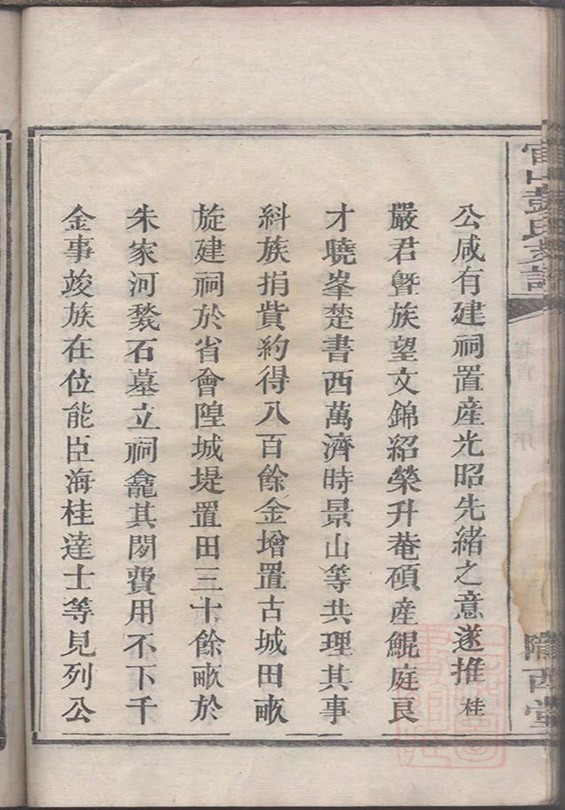 公咸有建祠置產光昭先緒之意遂推桂
嚴君曁族望文錦紹榮升菴碩產鯤庭良
才曉峯楚書西萬濟時景山等共理其事
糾族捐貲約得八百餘金增置古城田畝
旋建祠於省會隍城堤置田三十餘畝於
朱家河甃石墓立祠龕其閒費用不下千
金事竣族在位能臣海桂達士等見列公
隴西堂